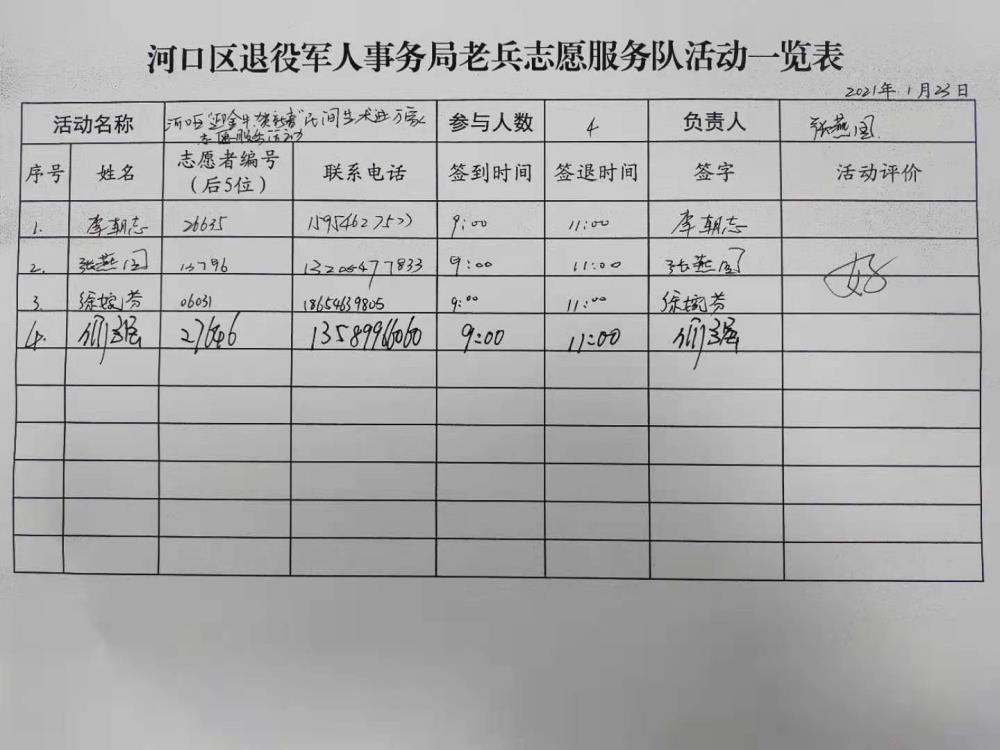 河口区退役军人事务局老兵志愿服务队活动一览表
2021年1月23日
活动名称 河口区"迎金牛 贺新春"民间艺术进万家 参与人数 4 负责人 张燕国
志愿服务活动
序号 姓名 志愿者编号 联系电话 签到时间 签退时间 签字 活动评价
（后5位）
1. 李朝志 26635 9:00 11:00 李朝志
2. 张燕国 9:00 11:00 张燕国 好
3. 徐婉芬 06031 18654639805 9:00 11:00 徐婉芬
4. 27646 13589966060 9:00 11:00